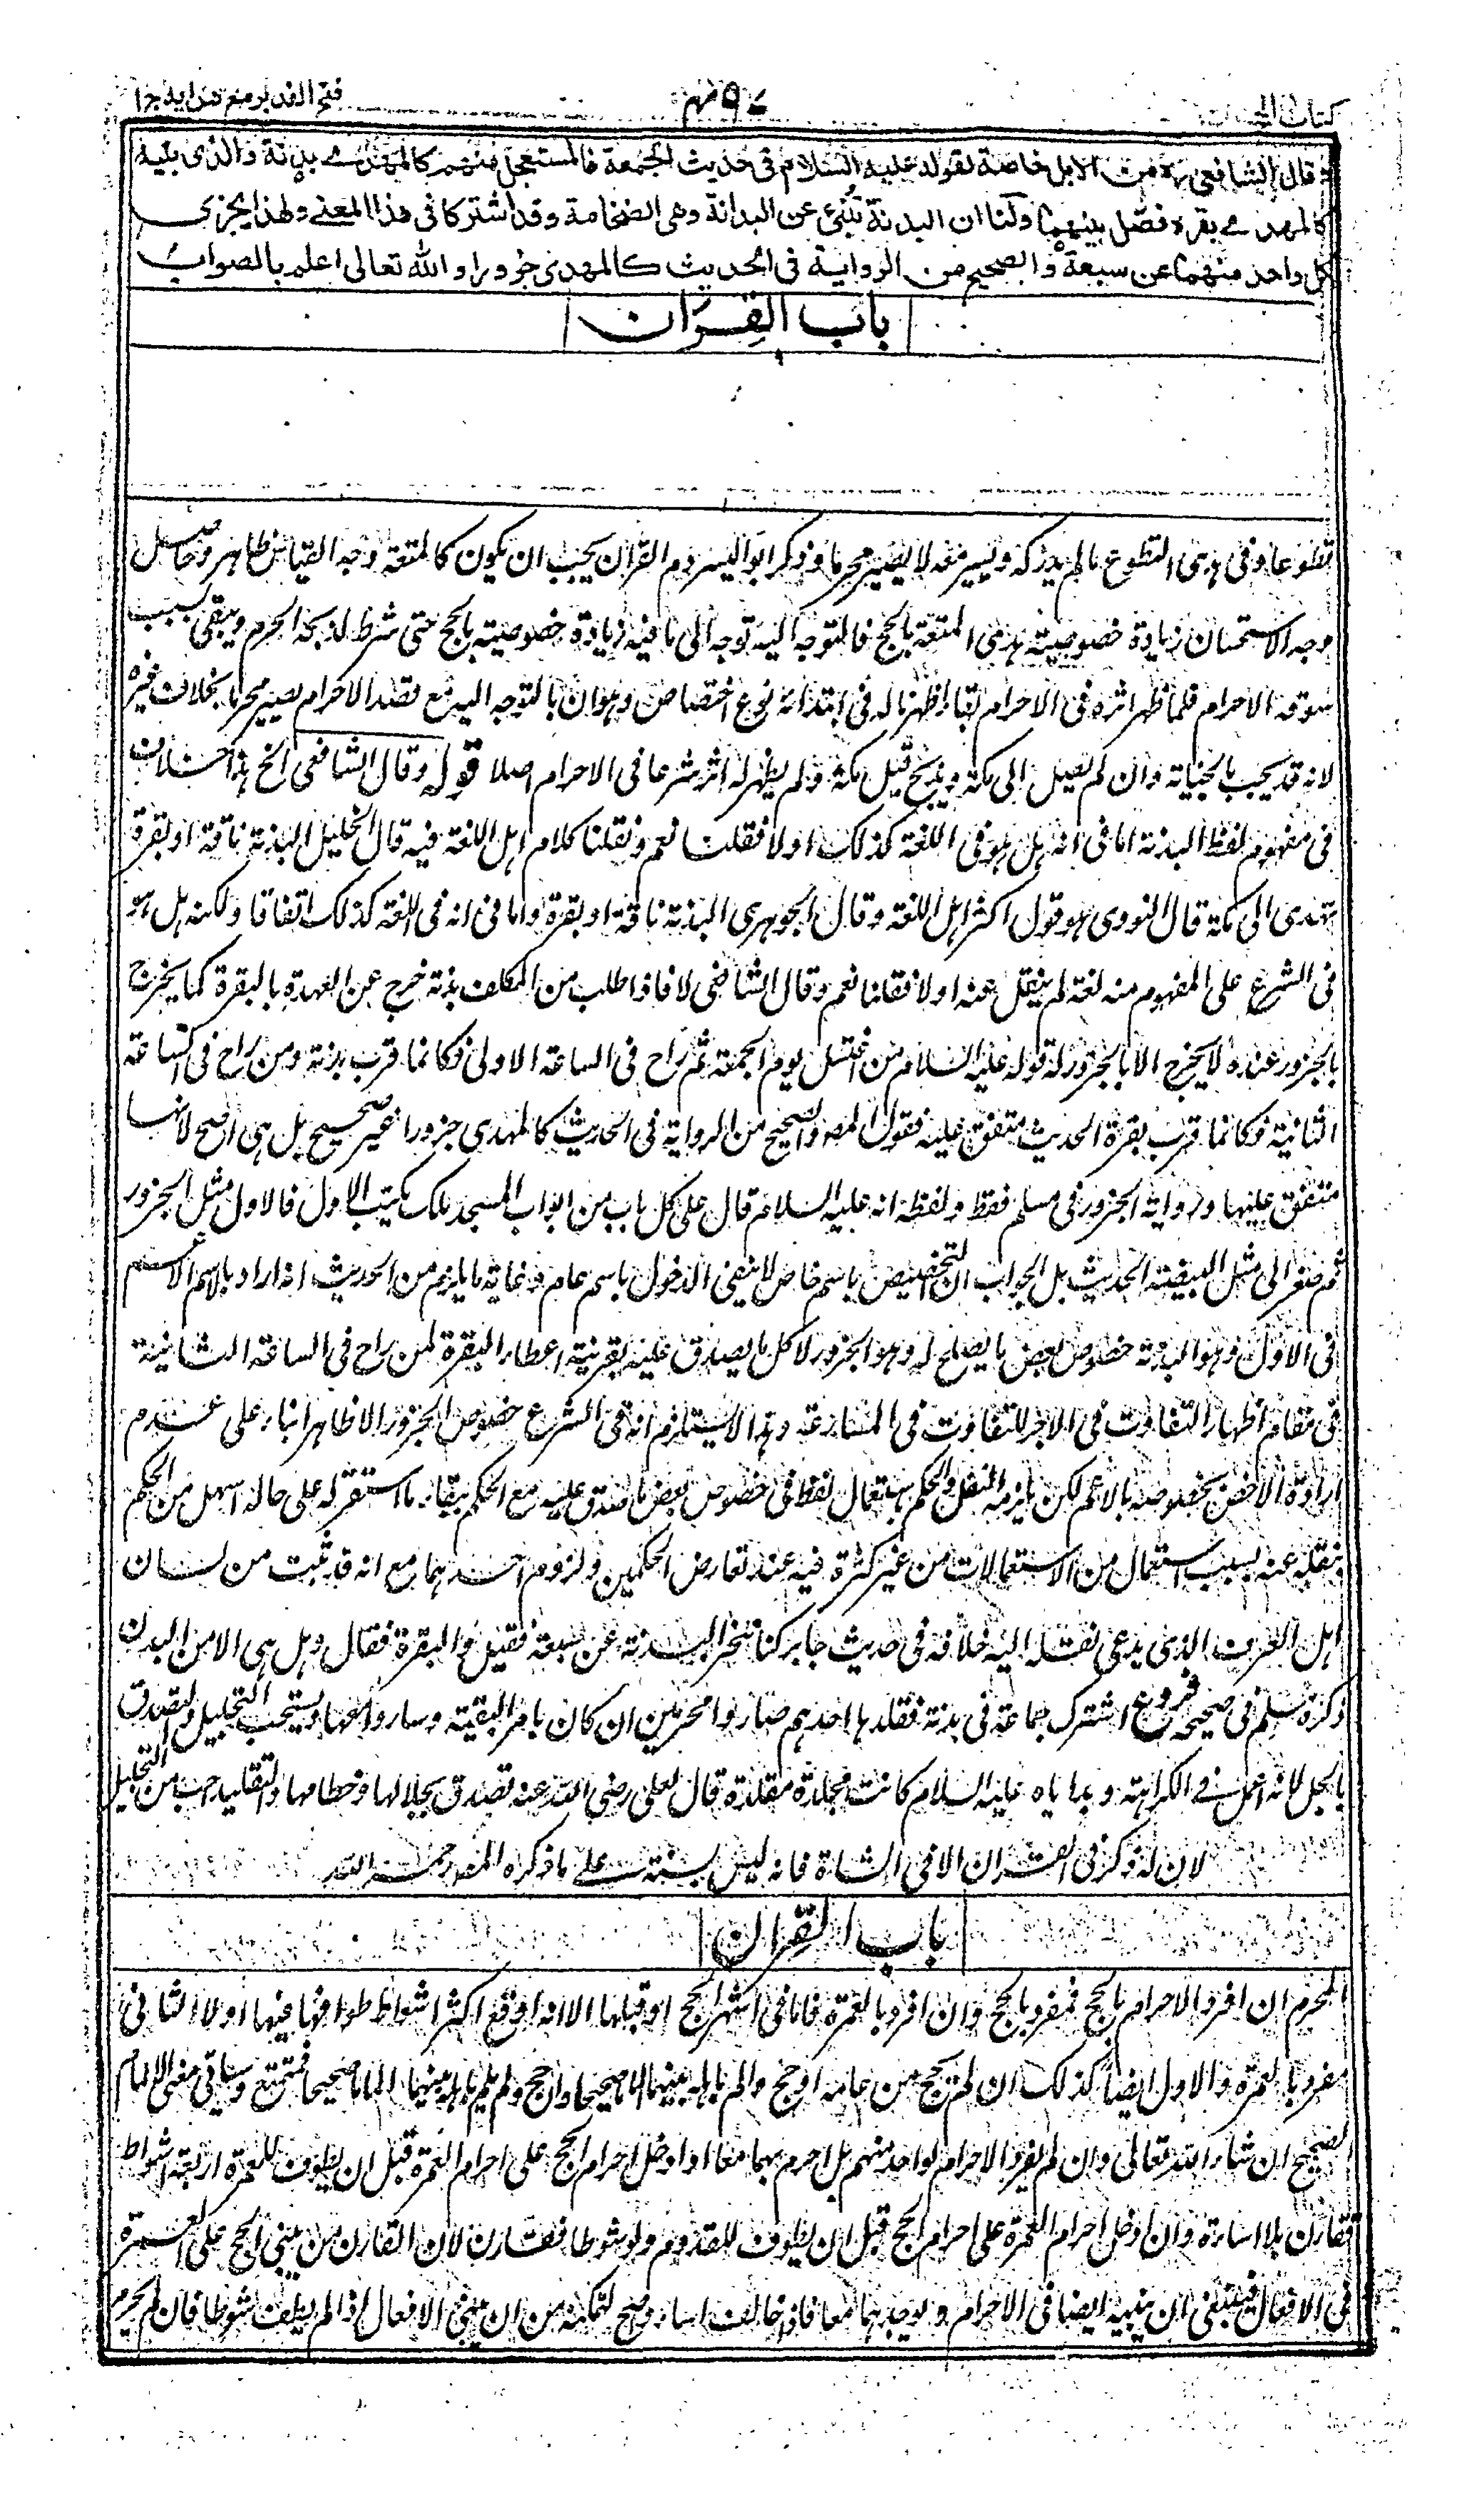 فتح القدير مع هدايه ج ١
٤٩٧
كتاب الحج
وقال الشافعي رح من الابل خاصة لقوله عليه السلام في حديث الجمعة فالمستعجل منهم كالمهدي بدنة والذي يليه
كالمهدي بقرة فصل بينهما ولنا ان البدنة تنبئ عن البدانة وهي الضخامة وقد اشتركا في هذا المعنى ولهذا يجزى
كل واحد منهما عن سبعة والصحيح من الرواية في الحديث كالمهدي جزورا والله تعالى اعلم بالصواب
باب القران
تطوعا وفي هدى التطوع مالم يدركه ويسير معه لا يصير محرما وذكر ابو اليسر دم القران يجب ان يكون كالمتعة وجه القياس ظاهر وحاصل
وجه الاستحسان زيادة خصوصية هدى المتعة بالحج فالتوجه اليه توجه الى ما فيه زيادة خصوصية بالحج حتى شرط لذبحه الحرم ويبقى بسبب
سوقه الاحرام فلما ظهر اثره في الاحرام بقاء اظهرنا له في ابتدائه نوع اختصاص وهو ان بالتوجه اليه مع قصد الاحرام يصير محرما بخلاف غيره
لانه قد يجب بالجناية وان لم يصل الى مكة ويذبح قبل مكة ولم يظهر له اثر شرعا في الاحرام اصلا قوله وقال الشافعي الخ هذا خلاف
في مفهوم لفظ البدنة اما في انه هل هو في اللغة كذلك اولا فقلنا نعم ونقلنا كلام اهل اللغة فيه قال الخليل البدنة ناقة او بقرة
تهدى الى مكة قال النووى هو قول اكثر اهل اللغة وقال الجوهرى البدنة ناقة او بقرة واما في انه في اللغة كذلك اتفاقا ولكنه هل هو
في الشرع على المفهوم منه لغة لم ينقل عنه اولا فقلنا نعم وقال الشافعي لا فاذا طلب من المكلف بدنة خرج عن العهدة بالبقرة كما يخرج
بالجزور وعنده لا يخرج الا بالجزور له قوله عليه السلام من اغتسل يوم الجمعة ثم راح في الساعة الاولى فكانما قرب بدنة ومن راح في الساعة
الثانية فكانما قرب بقرة الحديث متفق عليه فقول المصر والصحيح من الرواية في الحديث كالمهدى جزورا غير صحيح بل هي اصح لانها
متفق عليها ورواية الجزور في مسلم فقط ولفظه انه عليه السلام قال على كل باب من ابواب المسجد ملك يكتب الاول فالاول مثل الجزور
ثم صغر الى مثل البيضة الحديث بل الجواب ان التخصيص باسم خاص لا ينفي الدخول باسم عام وغاية ما يلزم من الحديث انه اراد بالاسم الاعم
في الاول وهو البدنة خصوص بعض ما يصلح له وهو الجزور لا كل ما يصدق عليه بقرينة اعطاء البقرة لمن راح في الساعة الثانية
في مقام اظهار التفاوت في الاجر للتفاوت في المسارعة وهذا لا يستلزم انه في الشرع خصوص الجزور الا ظاهرا بناء على عدم
ارادة الاخص بخصوصه بالاعم لكن يلزمه النقل والحكم باستعمال لفظ في خصوص بعض ما صدق عليه مع الحكم ببقاء ما استقر له على حاله اسهل من الحكم
بنقله عنه بسبب استعمال من الاستعمالات من غير كثرة فيه عند تعارض الحكمين ولزوم احدهما مع انه قد ثبت من لسان
اهل العرف الذي يدعى نقله اليه خلافه في حديث جابر كنا ننحر البدنة عن سبعة فقيل والبقرة فقال وهل هي الا من البدن
ذكره مسلم في صحيحه فروع اشترك جماعة في بدنة فقلدها احدهم صاروا محرمين ان كان بامر البقية وساروا معها ويستحب التجليل والتصدق
بالجل لانه اعمل في الكرامة وهداياه عليه السلام كانت مجللة مقلدة قال لعلي رضى الله عنه تصدق بجلالها وخطامها والتقليد احب من التجليل
لان له ذكر في القران الا في الشاة فانه ليس بسنة على ما ذكره المصر رحمه الله
باب القران
المحرم ان افرد الاحرام بالحج فمفرد بالحج وان افرد بالعمرة فاما في اشهر الحج او قبلها الا انه اوقع اكثر اشواط طوافها فيها اولا الثاني
مفرد بالعمرة والاول ايضا كذلك ان لم يحج من عامه او حج والم باهله بينهما الماما صحيحا وان حج ولم يلم باهله بينهما الماما صحيحا فمتمتع وسياتي معنى الالمام
الصحيح ان شاء الله تعالى وان لم يفرد الاحرام لواحد منهم بل احرم بهما معا او ادخل احرام الحج على احرام العمرة قبل ان يطوف للعمرة اربعة اشواط
فقارن بلا اساءة وان ادخل احرام العمرة على احرام الحج قبل ان يطوف للقدوم ولو شوطا فقارن لان القارن من يبني الحج على العمرة
في الافعال فينبغي ان يبنيه ايضا في الاحرام ويوجدهما معا فاذا خالف اساء وصح لتمكنه من ان يبني الافعال اذا لم يطف شوطا فان لم يحرم